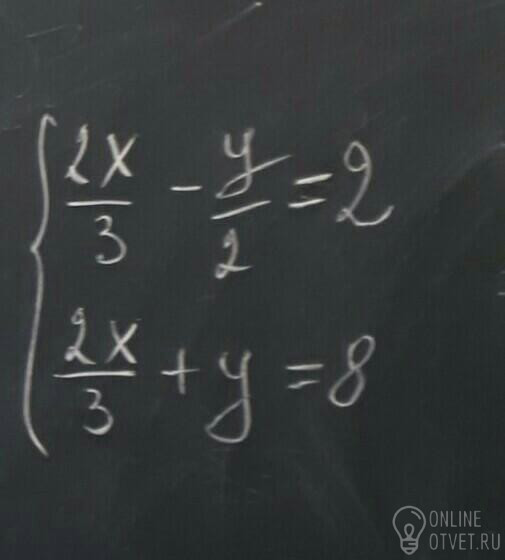 2x/3 - y/2 = 2
2x/3 + y = 8
ONLINE
OTVET.RU